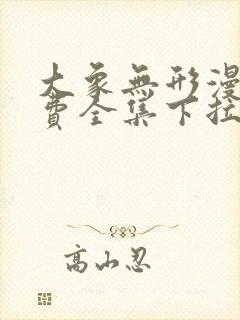 大象無形漫
費全集下拉
高山忍